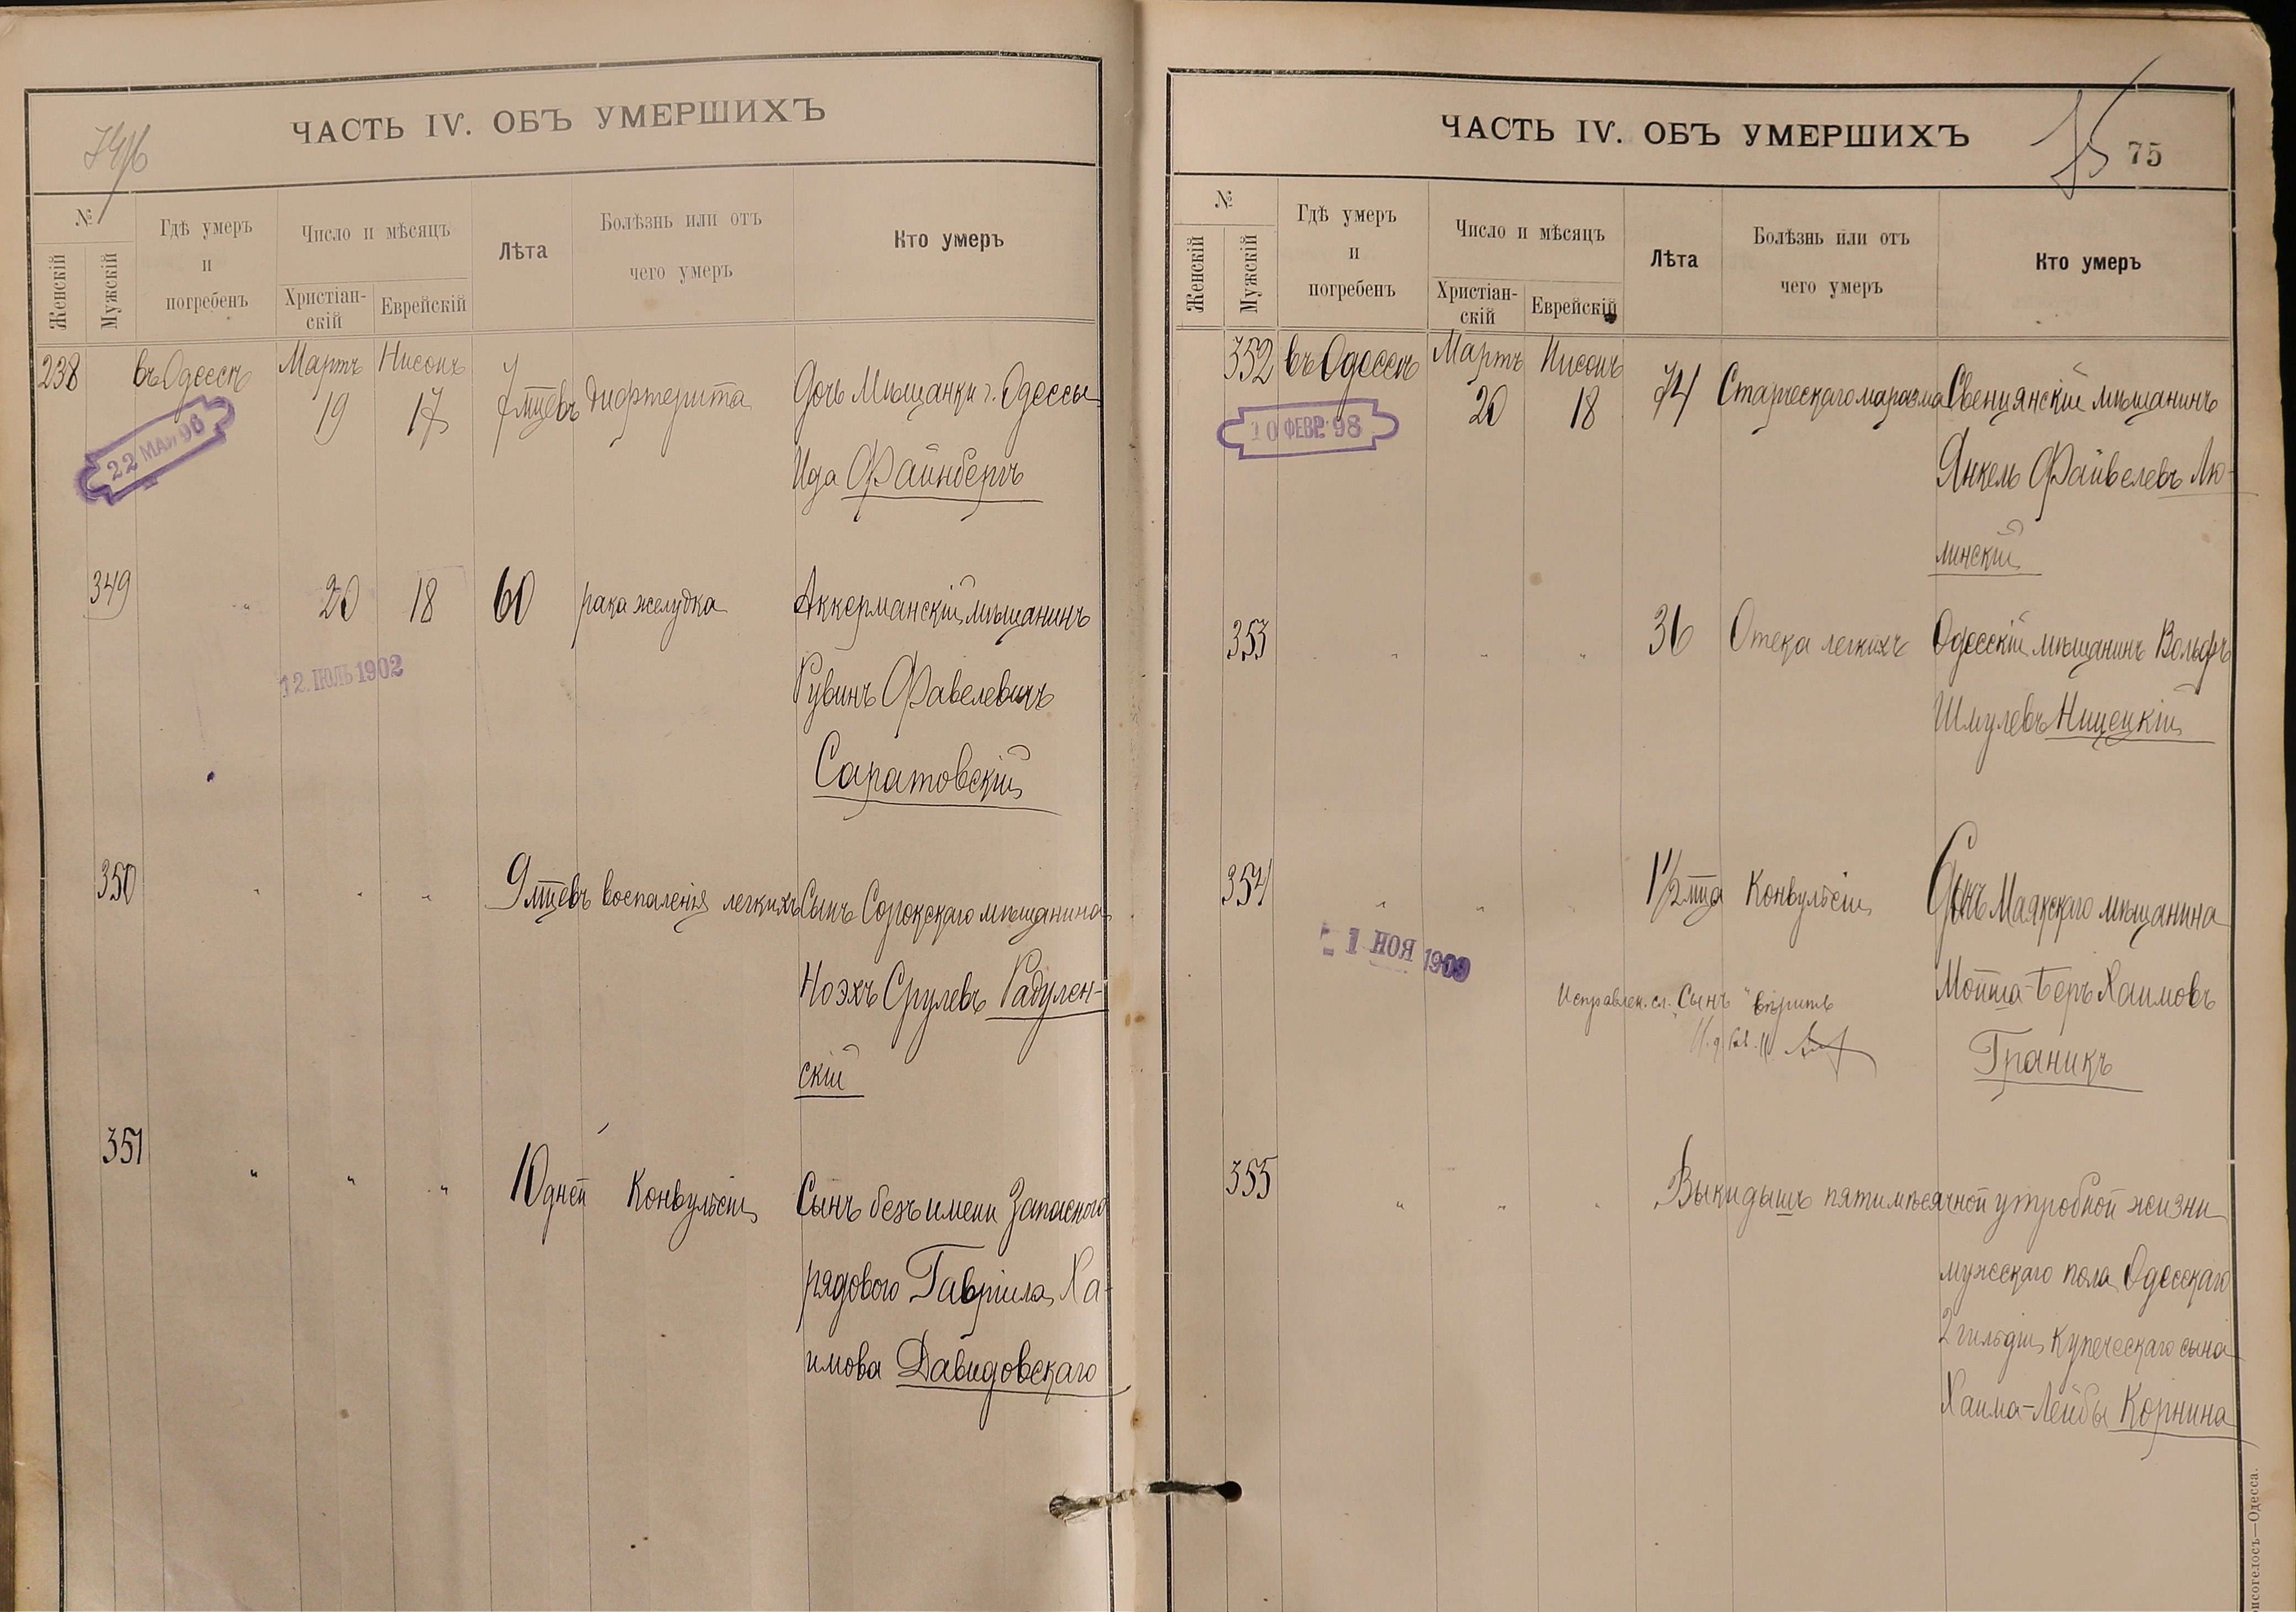 ЧАСТЬ IV. ОБЪ УМЕРШИХЪ
№
Женскій
Мужскій
Гдѣ умеръ
и
погребенъ
Число и мѣсяцъ
Христіан-
скій
Еврейскій
Лѣта
Болѣзнь или отъ
чего умеръ
Кто умеръ
238 въ Одессѣ Мартъ Нисонъ
19 17 7 мцевъ дифтерита Дочь Мѣщанки г. Одессы
22 МАЯ 96
Ида Файнбергъ
349 " 20 18 60 рака желудка Аккерманскій мѣщанинъ
12. ІЮЛЬ 1902
Рувинъ Фавелевичъ
Саратовскій
350 " " " 9 мцевъ воспаленія легкихъ Сынъ Сорокскаго мѣщанина
Ноэхъ Срулевъ Радулен-
скій
351 " " " 10 дней Конвульсіи Сынъ безъ имени Запаснаго
рядового Гавріила Ха-
имова Давидовскаго
ЧАСТЬ IV. ОБЪ УМЕРШИХЪ
75 75
№
Женскій
Мужскій
Гдѣ умеръ
и
погребенъ
Число и мѣсяцъ
Христіан-
скій
Еврейскій
Лѣта
Болѣзнь или отъ
чего умеръ
Кто умеръ
352 въ Одессѣ Мартъ Нисонъ
20 18 74 Старческаго маразма Свенцянскій мѣщанинъ
10 ФЕВР. 98
Янкель Файвелевъ Лю-
минскій
353 " " " 36 Отека легкихъ Одесскій мѣщанинъ Вольфъ
Шмулевъ Ницецкій
354 " " 1½ мца Конвульсіи Сынъ Маякскаго мѣщанина
1 НОЯ 1909
Исправлен. сл. "Сынъ" вѣрить
Мошка-Беръ Хаимовъ
Граникъ
355 " " " Выкидышъ пятимѣсячной утробной жизни
мужескаго пола Одесскаго
2 гильдіи Купеческаго сына
Хаима-Лейбы Корнина